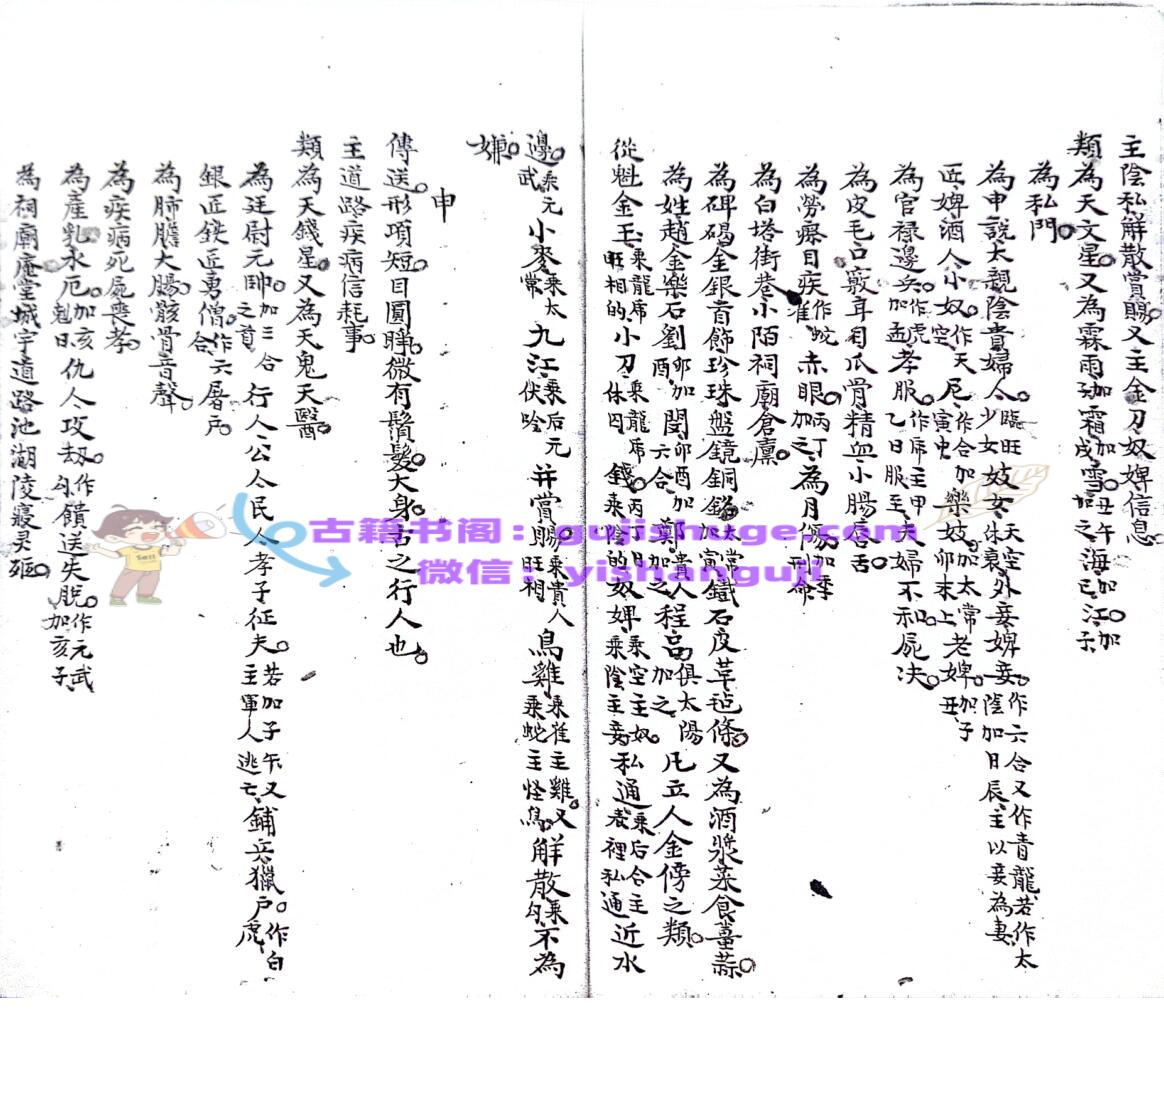 主陰私解散賞賜又主金刀奴婢信息
類為天文星又為霖雨加霜加戌雪加丑午加之海加巳江加子
為私門
為申說大親陰貴婦人臨旺少女妓女天空休衰外妾婢妾作六合又作青龍若作太陰加日辰主以妾為妻
匠婢酒人小奴作天空尼作合加寅虫樂妓加太常卯未上老婢加子丑
為官禄邊兵作虎加孟孝服作席主甲乙日服至夫婦不和屍决
為皮毛口竅耳目爪骨精血小腸唇舌
為勞瘵目疾作蛇赤眼丙丁加之為月傷加季刑命
為白塔街巷小陌祠廟倉廩
為碑碣金銀首飾珍珠盤鏡銅太常加寅鐵石皮草毡條又為酒漿菜食薑蒜
為姓趙金樂石劉卯加酉閔卯酉加六合鄭貴人加之程高俱太陽加之凡立人金傍之類
從魁金玉乘龍席旺相的小刀乘龍席休囚錢丙丁月乘陰的奴婢乘空主奴乘陰主妾私通乘后合主裡私通近水
邊乘元武小麥乘太常九江乘后元伏吟并賞賜乘貴人旺相鳥雞乘雀主雞又乘蛇主怪鳥解散乘勾不為
嫌
申
傳送形項短目圓睜微有鬚髮大身古之行人也
主道路疾病信耗事
類為天錢星又為天鬼天醫
為廷尉元帥加三合之首行人公人民人孝子征夫若加子午又主軍人逃亡鋪兵獵户作白虎
銀匠鉄匠勇僧作六合屠户
為肺膽大腸骸骨音聲
為疾病死屍喪孝
為產乳水厄加亥剋日仇人攻刼作勾饋送失脱作元武加亥子
為祠廟庵堂城宇道路池湖陵寢灵柩
古籍书阁：gujishuge.com
微信：yishanguji